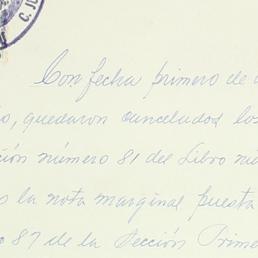 C. JU
Con fecha primero de
o, quedaron cancelados los
ción número 81 del Libro nú
s la nota marginal puesta
o 87 de la Sección Prime